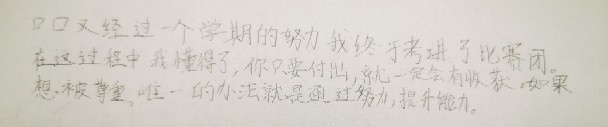 口口又经过一个学期的努力我终于考进了比赛团。
在这过程中我懂得了,你只要付出,就一定会有收获。如果
想被尊重,唯一的办法就是通过努力,提升能力。